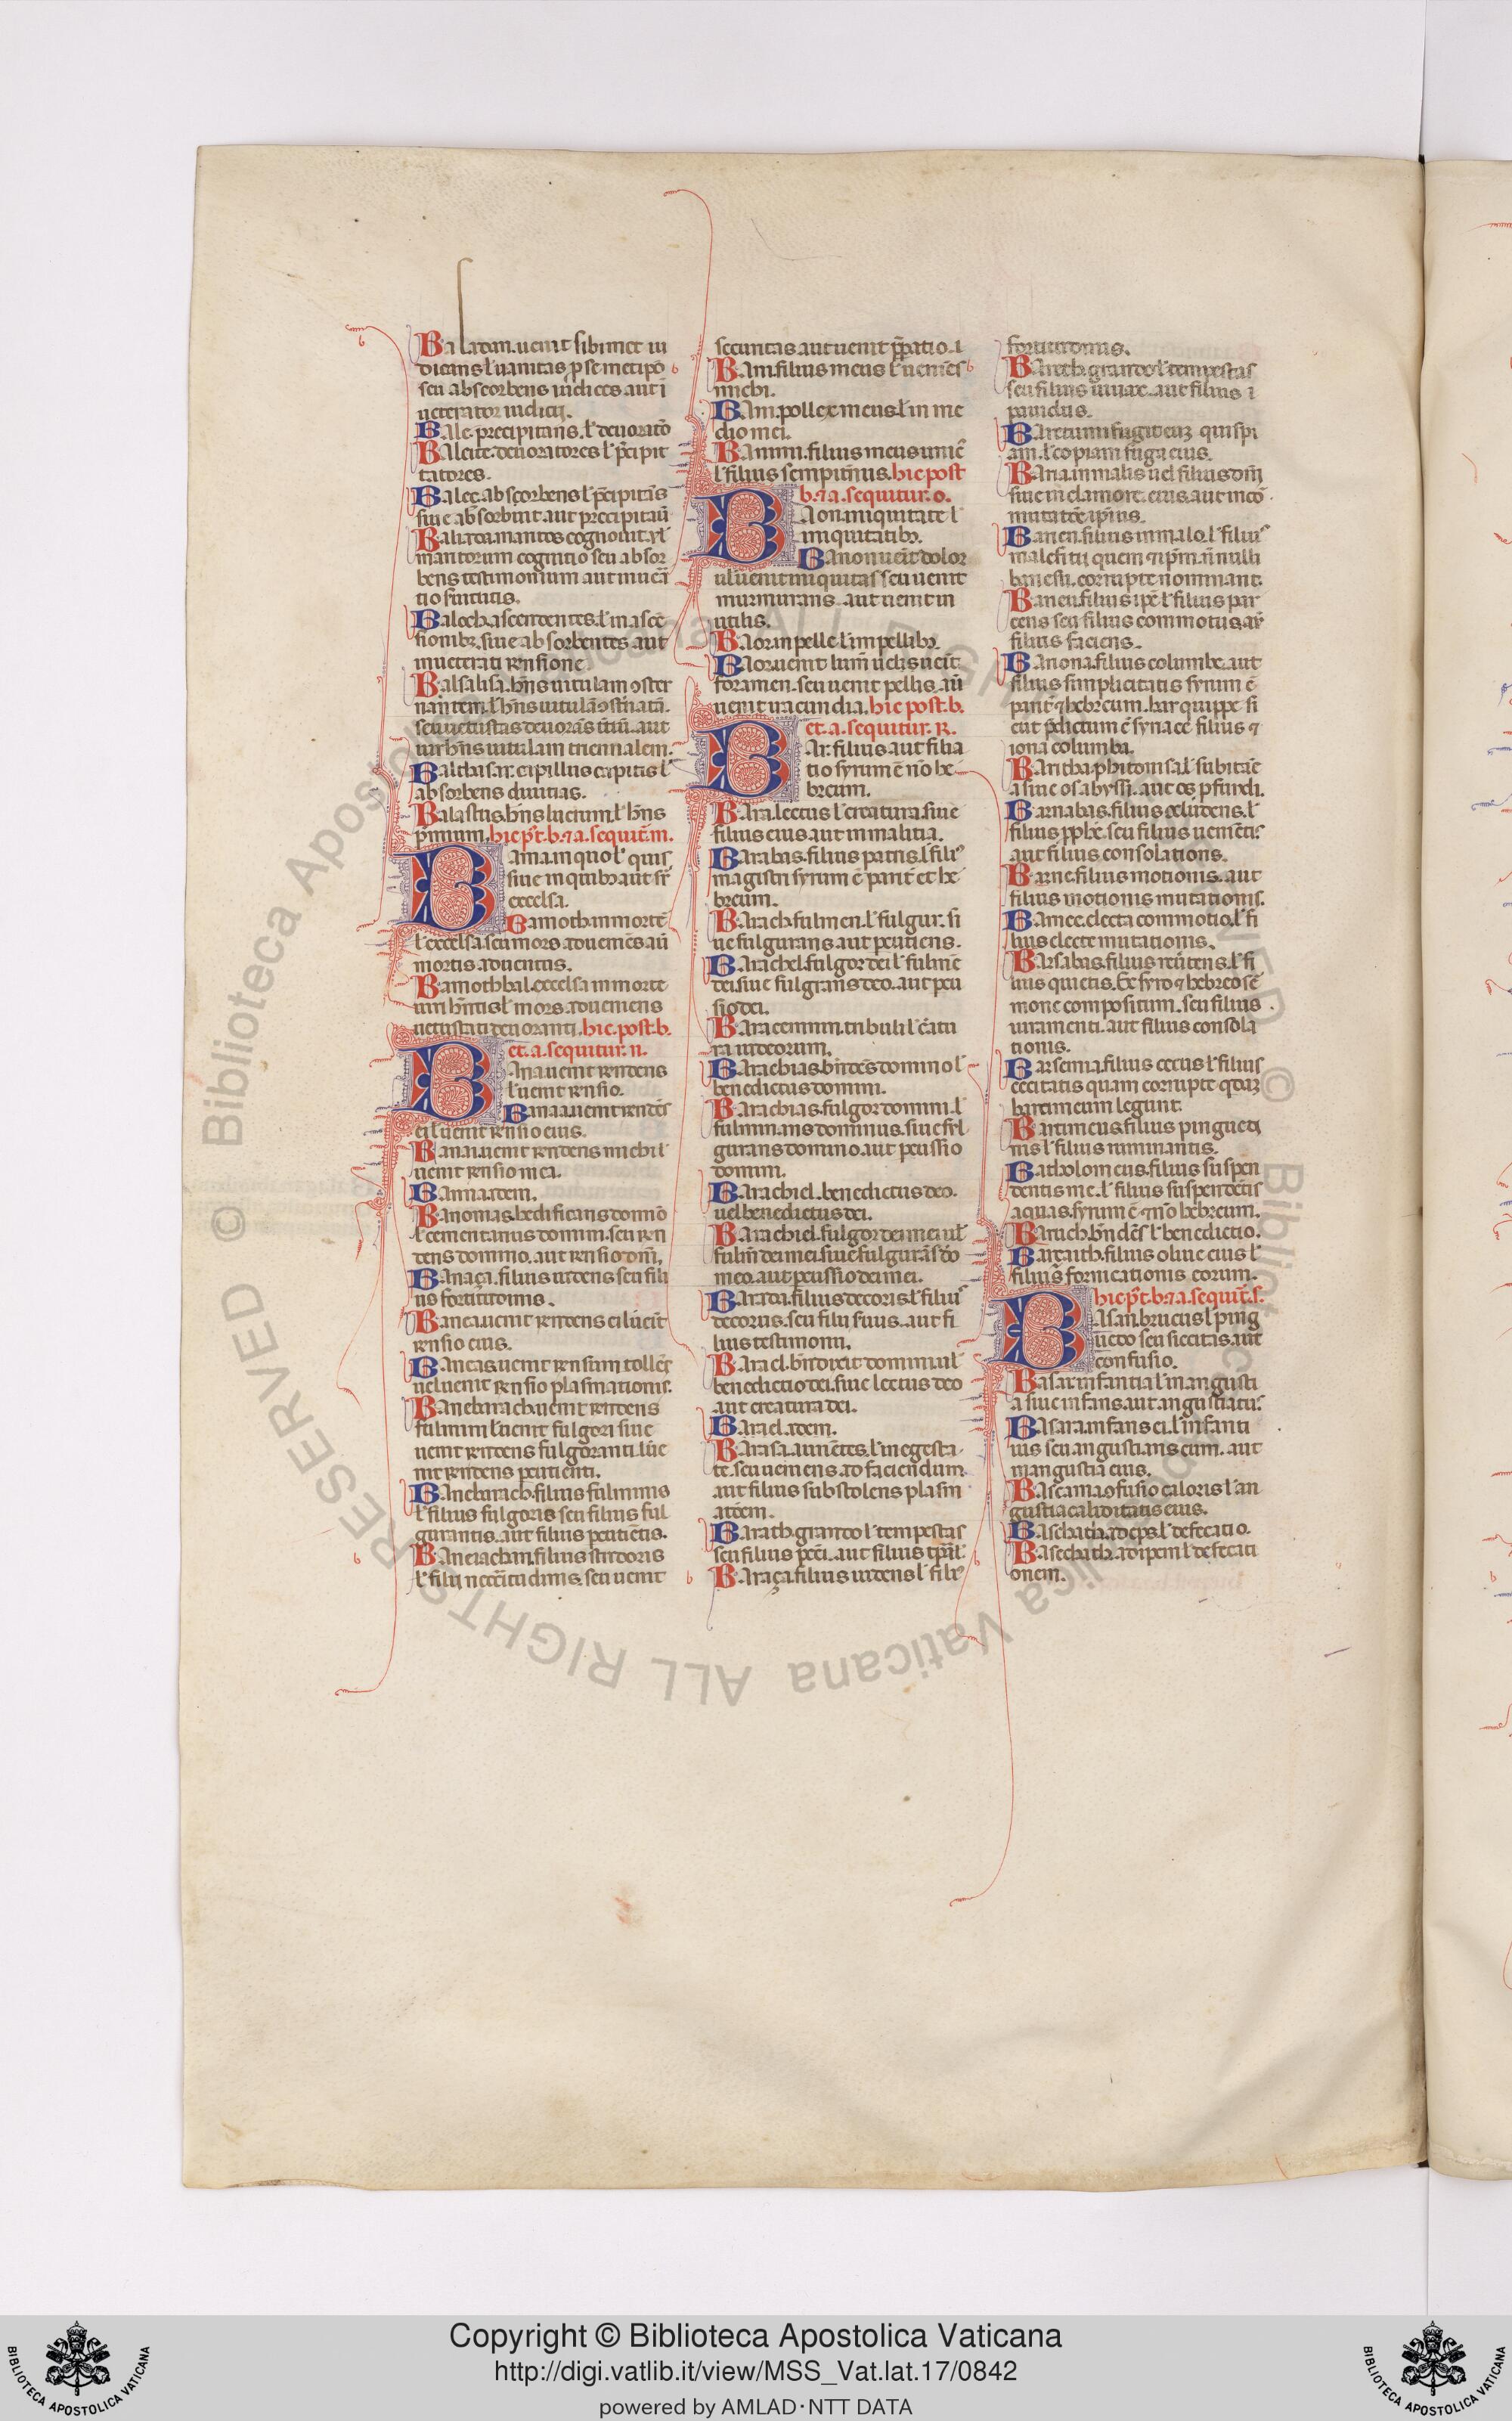 Baladan. uenit sibimet iu
dicans l' uanitas p se metipō
seu absorbens iudices aut i
ueterator iudicij.
Bale. precipitans. l' deuoratō
Baleite. deuoratores l' p̄cipit
tatores.
Balec. absorbens l' p̄cipitās
siue absorbuit aut precipitauī
Baliada. mantos cognouit. ul'
mantorum cognitio seu absor
bens testimonium aut inueā
tio
Baloth. ascendentes. l' in ascē
sionibȝ. siue absorbentes aut
inueterati sensione
Balsalisa. hn̄s uitulam oster
nantem. l' hn̄s uitulā
seu uetustas deuorās aut
hn̄s uitulam triennalem.
Balthasar. capillus capitis l'
absorbens diuitias.
Balastus. hn̄s lucium. l' hn̄s
p̄mium. hic p̄t. b. ⁊ a. sequit̄. m.
Bama. in quo l' quis
siue in quibȝ aut
excelsa.
Bamoth. in morte
l' excelsa. seu mors aduenies aū
mortis aduentus.
Bamothbal. excelsa in morte
l' mors adueniens
uetustati deuoranti. hic. post. b.
et. a. sequitur. n.
Bana. uenit rendens
l' uenit rensio.
Banaa. uenit rendēs
ei l' uenit rensio eius.
Banai. uenit rendens michi l'
uenit rensio mea.
Banna. idem.
Banomas. hedificans domīo
l' cementarius domini. seu ren
dens domino. aut rensio dom̄i.
Banaça. filius uidens seu fili
us fortitudinis.
Banea. uenit rendens ei l' uēit
rensio eius.
Baneas. uenit rensum tollēs
uel uenit rensio plasmationis.
Banebarach. uenit rendens
fulmini l' uenit fulgori siue
uenit rendens fulgoranti. l' ue
nit rendens peutienti.
Banebarach. filius fulminis
l' filius fulgoris seu filius ful
gurantis. aut filius peutiētis.
Baneiachan. filius stridoris
l' filij necēitudinis. seu uenit
secunitas aut uenit p̄patio. i
Bani. filius meus l' ueniēs
michi.
Bani. pollex meus. l' in me
dio mei.
Banim. filius meus
l' filius sempit̄nus. hic post
b. ⁊ a. sequitur. o.
Baon. in iniquitate l'
iniquitatibȝ.
Banon. uēit dolor
ul' uenit iniquitas seu uenit
murmurans. aut uenit in
utilis.
Baor. in pelle. l' in pellibȝ.
Baor. uenit lum̄ uel uēit
foramen. seu uenit pellis. aū
uenit iracundia. hic post. b.
et. a. sequitur. R.
Bar. filius aut filia
tio syrum ē nō he
breum.
Bara. lectus l' creatura siue
filius eius aut in malitia.
Barabas. filius patris. l' filiꝰ
magistri syrum ē pariē et he
breum.
Barach. fulmen. l' fulgur. si
ue fulgurans aut peutiens.
Barachel. fulgor dei l' fulmē
dei. siue fulgrans deo. aut peu
sio dei.
Baracenim. tribuli l' c̄atu
ra iudeorum.
Barachias. bn̄dicēs domino l'
benedictus domini.
Barachias. fulgor domini. l'
fulminans dominus. siue ful
gurans domino. aut peussio
domini.
Barachiel. benedictus deo.
uel benedictus dei.
Barachiel. fulgor dei mei ul'
fulm̄ dei mei. siue fulgurās dō
meo. aut peussio dei mei.
Barada. filius decoris. l' filiuꝰ
decorus. seu filij suus. aut fi
lius testimonij.
Barael. bn̄dixit domini ul'
benedictio dei. siue lectus deo
aut creatura dei.
Barael. idem.
Barasa. auiētes. l' in egesta
te. seu ueniens ad faciendum.
aut filius sub stolens plasm
atōem.
Barath. grando l' tempestas
seu filius p̄ceī. aut filius
Baraça. filius uidens l' filiꝰ
fortitudinis.
Bareth. grando l' tempestas
seu filius uiuax. aut filius i
pauidus.
Baretum fugit eiȝ quispi
am. l' copiam fuga eius.
Baria. in malis uel filius dom̄
siue in clamore. eius. aut in cō
mutatōe ipius.
Barien. filius in malo. l' filiuꝰ
malefi quem
hariesu. corrupte nominant.
Barieu. filius ipē l' filius par
cens seu filius commotus. aū
filius faciens.
Bariona. filius columbe. aut
filius simplicitatis syrum ē
parit̄ ⁊ hebreum. bar quippe si
cut p̄dictum ē syriace filius ⁊
iona columba.
Baritha. phitonisa. l' subitāe
a siue os abyssi. aut os p̄fundi.
Barnabas. filius l'
filius pphē. seu filius ueniētis
aut filius consolationis.
Barne. filius motionis. aut
filius motionis mutationis.
Barnee. electa commotio. l' fi
lius electe mutationis.
Barsabas. filius reūtens. l' fi
lius quietis. Ex syro ⁊ hebreo sē
mone compositum. seu filius
iuramenti. aut filius consola
tionis.
Barsemia. filius cecus l' filius
cecitatis quam corrupte qdaȝ
bartimeum legunt.
Bartimeus. filius pinguedi
nis l' filius ruminantis.
Bartholomeus. filius suspen
dentis me. l' filius suspendētis
aquas. syrum ē ⁊ nō hebreum.
Baruch. bn̄dcēs l' benedictio.
Barçaith. filius oliue eius l'
filius fornicationis eorum.
hic. p̄t. b. ⁊ a. sequit̄. s.
Basan. brucus l' ping
uedo seu siccitas. aut
confusio.
Basar. infantia l' in angusti
a siue infans. aut angustiatuꝰ
Basara. infans ei. l' infanti
uis seu angustians eum. aut
in angustia eius.
Bascama. ꝯfusio caloris l' an
gustia caliditatis eius.
Basebath. adeps. l' defecatio.
Basechath. adipem l' defecati
onem.
© Biblioteca Apostolica Vaticana ALL RIGHTS RESERVED
Copyright © Biblioteca Apostolica Vaticana
http://digi.vatlib.it/view/MSS_Vat.lat.17/0842
powered by AMLAD · NTT DATA
BIBLIOTECA APOSTOLICA VATICANA
BIBLIOTECA APOSTOLICA VATICANA